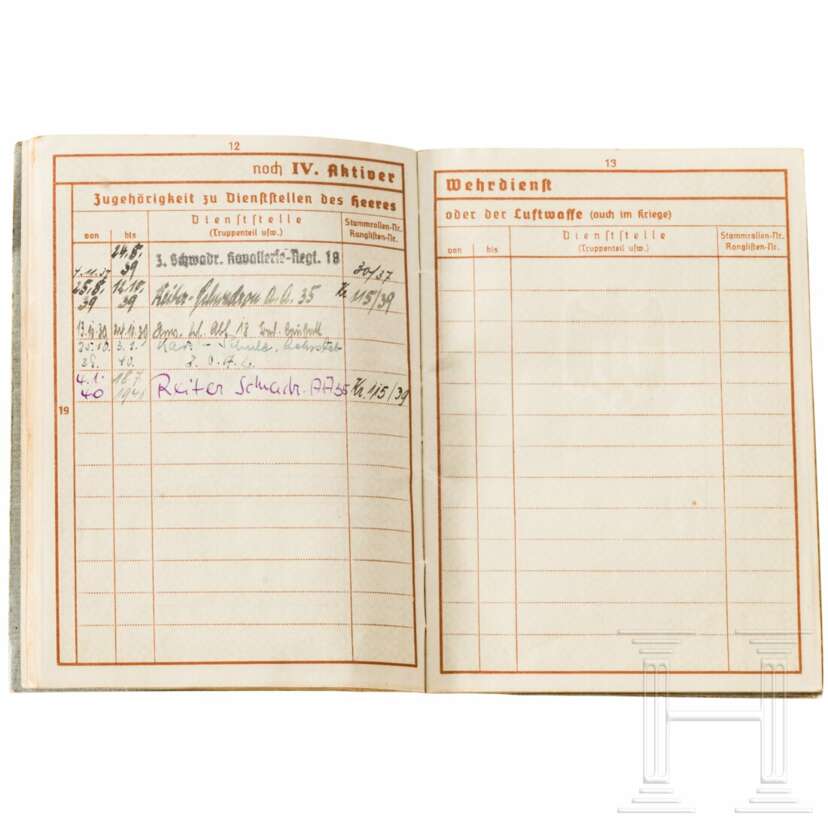 12
noch IV. Aktiver
Zugehörigkeit zu Dienststellen des Heeres
von
bis
Dienststelle
(Truppenteil usw.)
Stammrollen-Nr.
Ranglisten-Nr.
24.8.
39
3. Schwadr. Kavallerie-Regt. 18
30/37
25.8.
39
39
Reiter-Schwadron A.A. 35
Kr 115/39
4.1.
40
16.7
1941
Reiter Schwadr. AA 35
Kr. 115/39
19
13
Wehrdienst
oder der Luftwaffe (auch im Kriege)
von
bis
Dienststelle
(Truppenteil usw.)
Stammrollen-Nr.
Ranglisten-Nr.
H